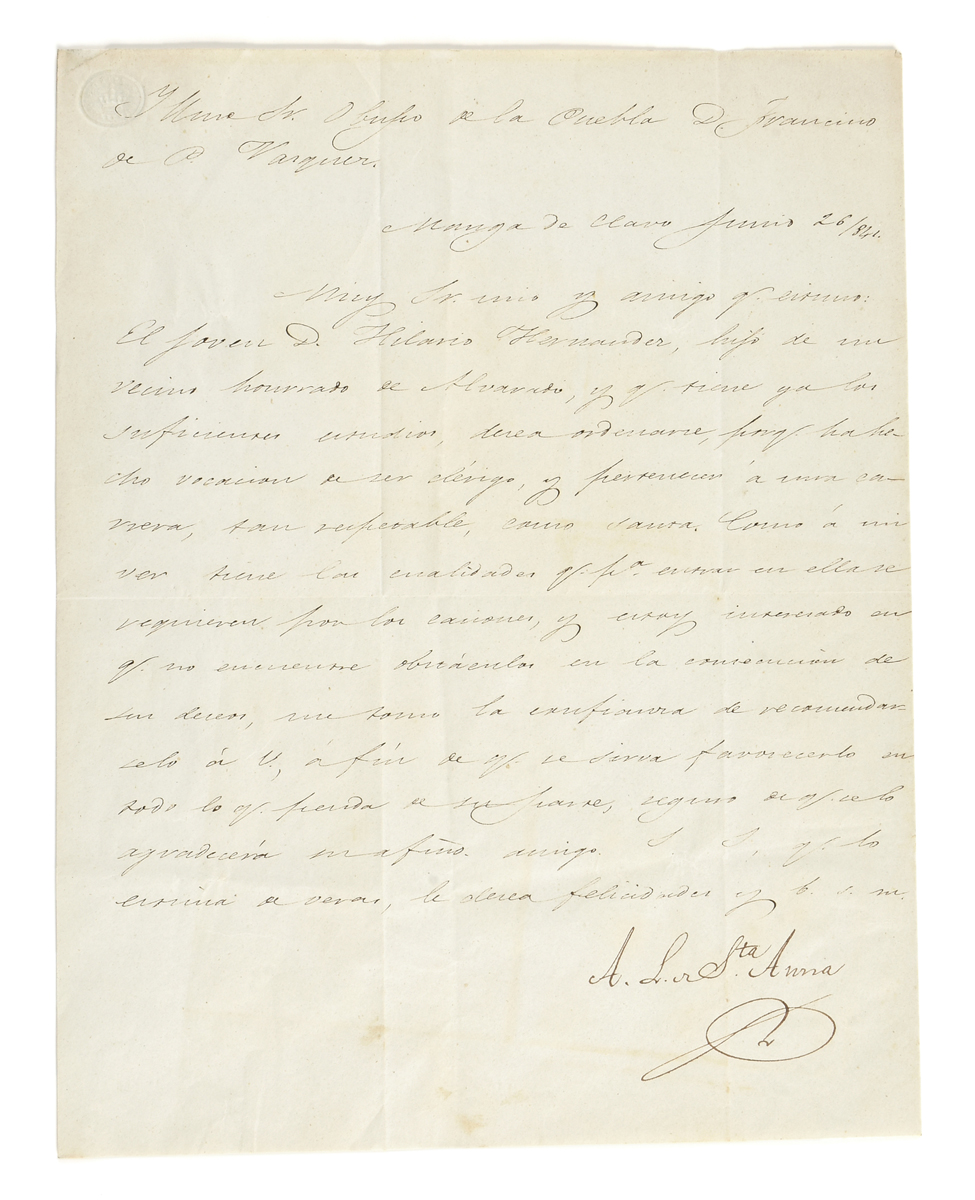 Yllmo Sr. Obispo de la Puebla D. Francisco
de P. Vasquez.
Manga de Clavo Junio 26/841.
Muy Sr. mio y amigo q. estimo:
El joven D. Hilario Hernandez, hijo de un
vecino hourrado de Alvarado, y q. tiene ya los
suficientes estudios, desea ordenarse, porq. ha he-
cho vocacion de ser clérigo, y pertenecer á una ca-
rrera, tan respetable, como santa. Como á mi
ver tiene las cualidades q. pa. entrar en ella se
requieren por los canones, y estoy interesado en
q. no encuentre obstáculos en la consecucion de
sus deseos, me tomo la confianza de recomendar-
selo á V., á fin de q. se sirva favorecerlo en
todo lo q. penda de su parte, seguro de q. se lo
agradecerá su afmo. amigo. S. S., q. lo
estima de veras, le desea felicidades y b. s. m.
A. L. de Sta. Anna